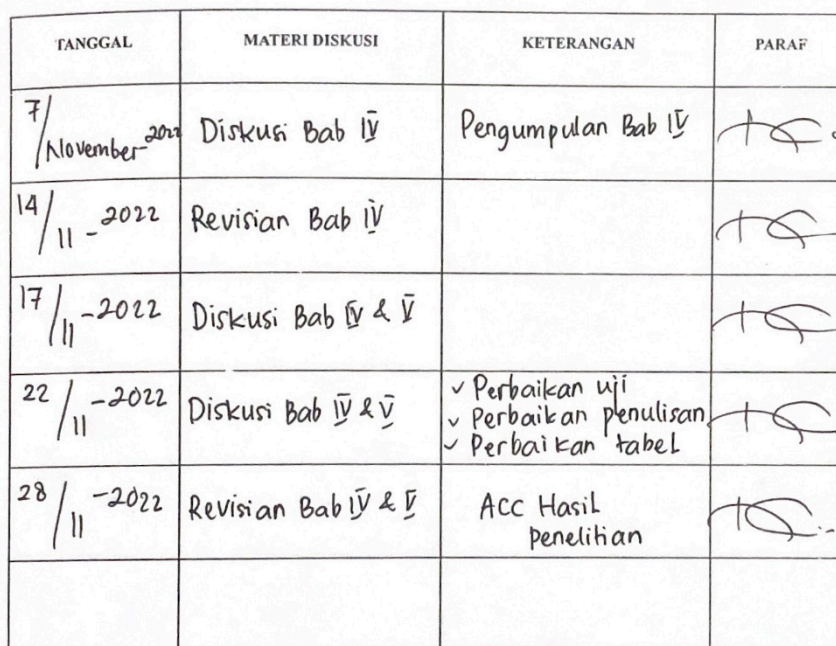 TANGGAL MATERI DISKUSI KETERANGAN PARAF
7/November-2022 Diskusi Bab IV Pengumpulan Bab IV
14/11-2022 Revisian Bab IV
17/11-2022 Diskusi Bab IV & V
22/11-2022 Diskusi Bab IV & V ✓ Perbaikan uji
✓ Perbaikan penulisan
✓ Perbaikan tabel
28/11-2022 Revisian Bab IV & V ACC Hasil
penelitian